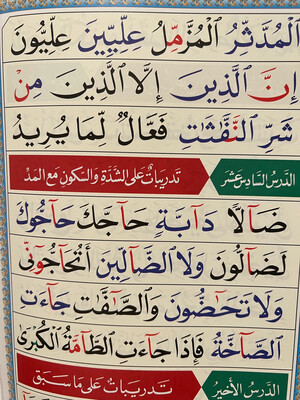 ٱلْمُدَّثِّرُ ٱلْمُزَّمِّلُ عِلِّيِّينَ عِلِّيُّونَ
إِنَّ ٱلَّذِينَ إِلَّا ٱلَّذِينَ مِنْ
شَرِّ ٱلنَّفَّٰثَٰتِ فَعَّالٌ لِّمَا يُرِيدُ
الدَّرسُ السَّادِسَ عَشَرَ تَدرِيبَاتٌ عَلَى الشَّدَّةِ وَالسُّكونِ مَعَ المَدِّ
ضَآلًّا دَآبَّةٍ حَآجَّكَ حَآجُّوكَ
لَضَآلُّونَ وَلَا ٱلضَّآلِّينَ أَتُحَٰٓجُّوٓنِّي
وَلَا تَحَٰٓضُّونَ وَٱلصَّٰٓفَّٰتِ جَآءَتِ
ٱلصَّآخَّةُ فَإِذَا جَآءَتِ ٱلطَّآمَّةُ ٱلْكُبْرَىٰ
الدَّرسُ الأَخِيرُ تَدرِيبَاتٌ عَلَى مَا سَبَقَ